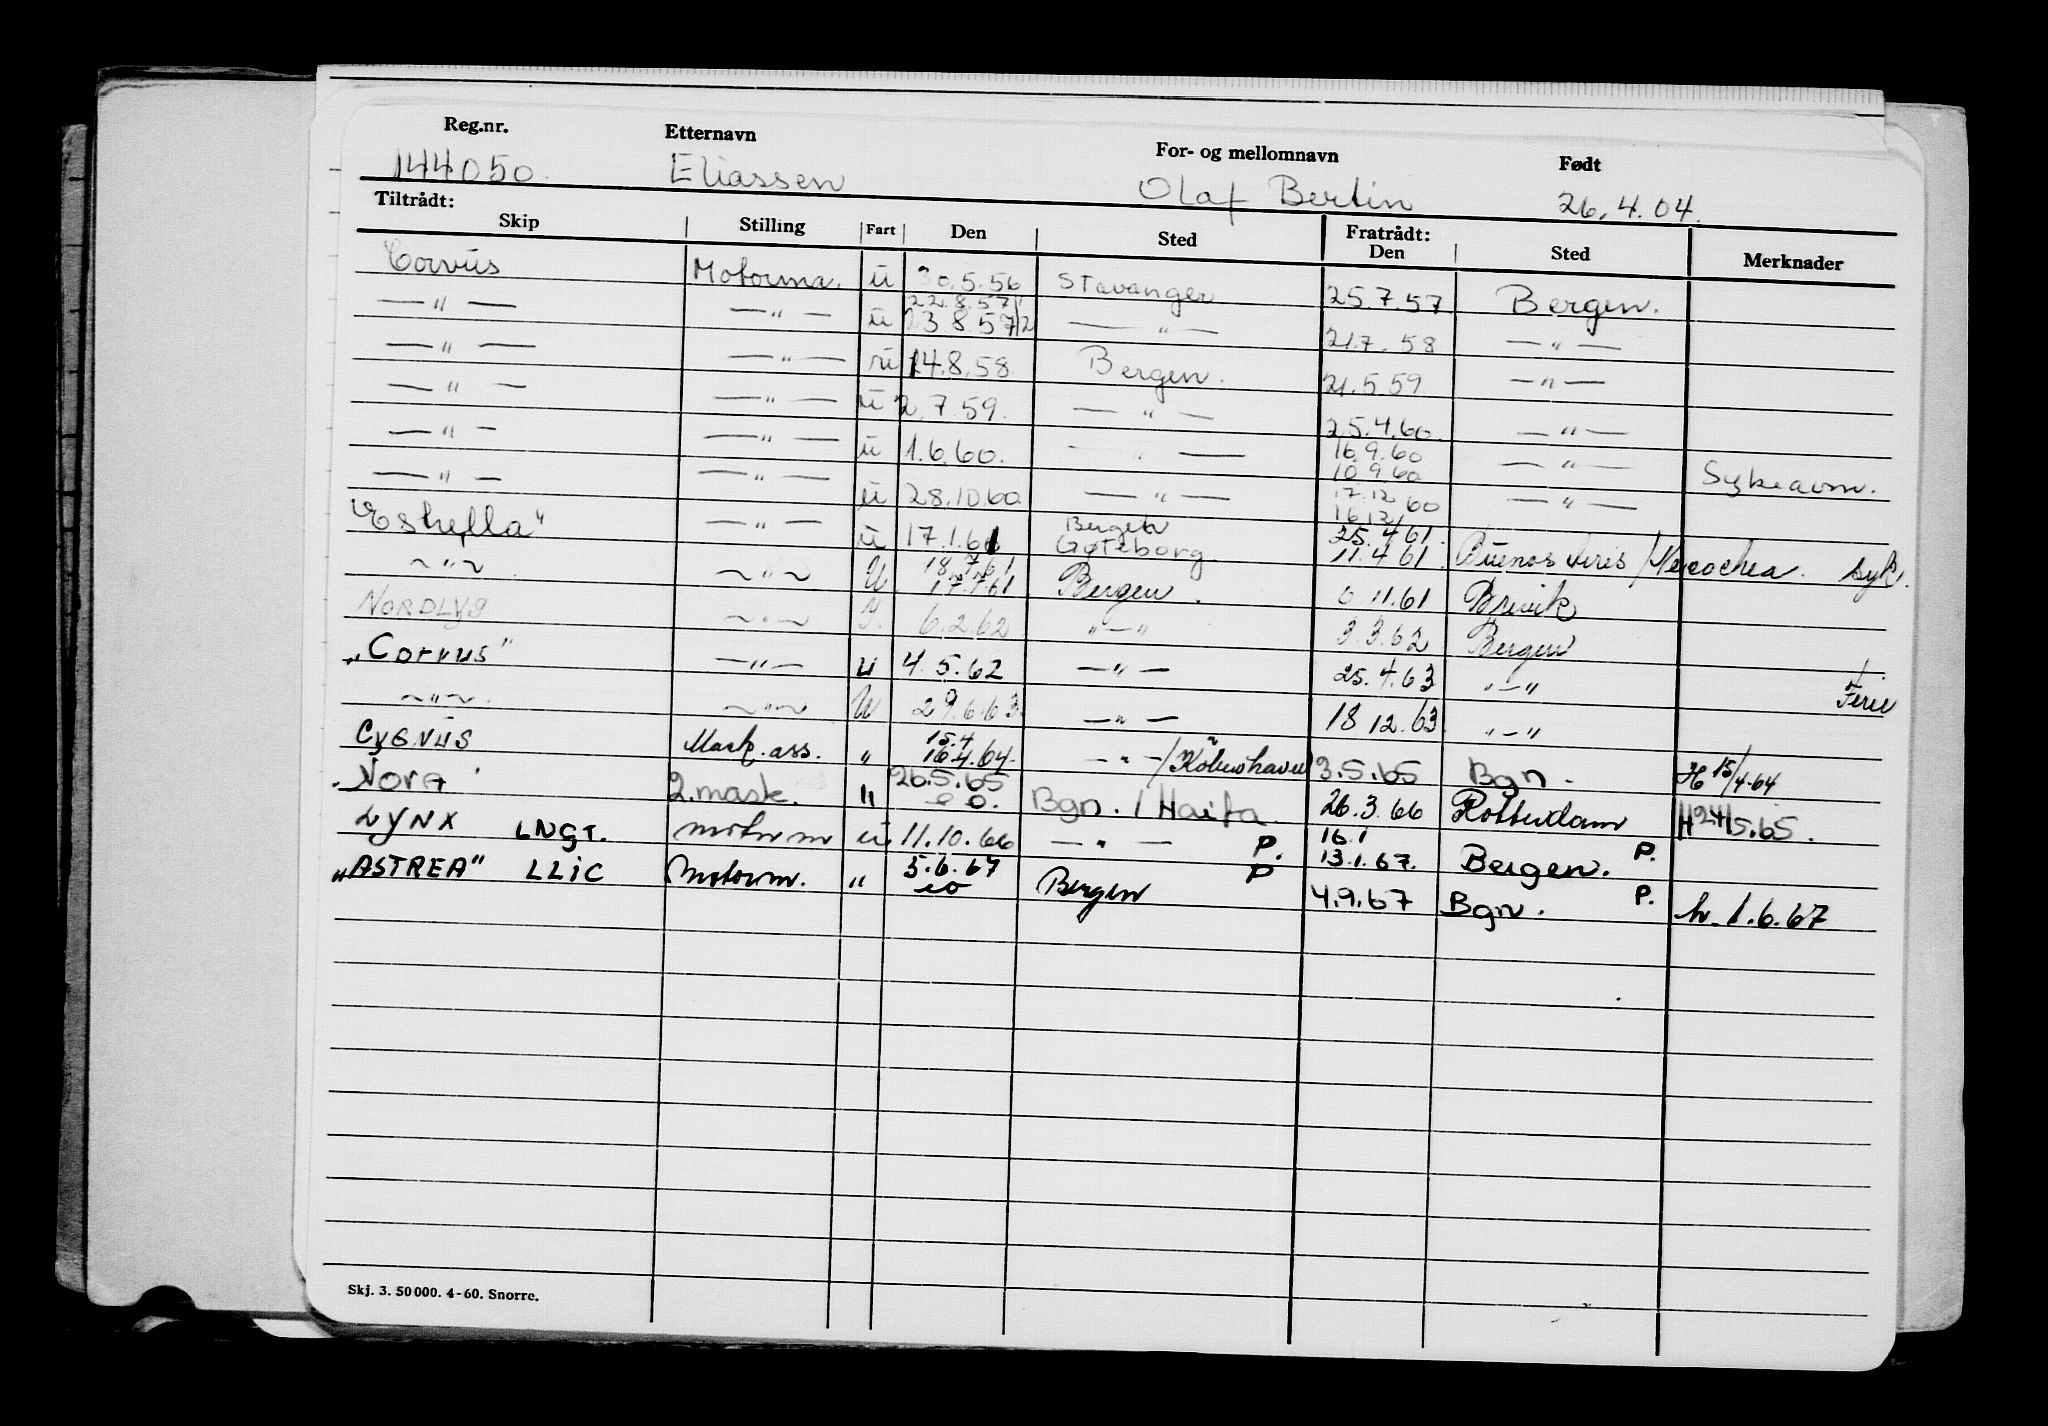 Reg.nr. Etternavn For- og mellomnavn Født
144050. Eliassen Olaf Bertin 26.4.04.
Tiltrådt: Fratrådt:
Skip Stilling Fart Den Sted Den Sted Merknader
Corvus Motorma. u 30.5.56 Stavanger 25.7.57 Bergen.
—"— —"— u 22.8.57 23.8.57 —"— 21.7.58 —"—
—"— —"— u 14.8.58 Bergen. 21.5.59 —"—
—"— —"— u 2.7.59. —"— 25.4.60. —"—
—"— —"— u 1.6.60. " — 16.9.60 10.9.60 —"— Sykeavm.
—"— —"— u 28.10.60 —"— 17.12 16.12 60 —"—
"Estrella" —"— u 17.1.61 Bergen Gøteborg. 25.4.61. 11.4.61. Buenos Aires / syk.
~"~ ~"~ U 18.7.61 17.7.61 Bergen. 11.61 Brevik
NORDLYS ~"~ 6.2.62 "—" 3.3.62 Bergen
"Corvus" —"— u 4.5.62 —"— 25.4.63 "—" Ferie
~"~. ~"~ U 29.6.63. —"— 18.12.63 "—"
CYGNUS Mask.ass. " 15.4 16.4.64. —"— / København 3.5.65 Bgn. H 15/4-64
"Nora" 2.mask. " 26.5.65 e o. Bgn. / Haifa. 26.3.66 Rotterdam H 24/5.65.
LYNX LNGT. motorm u. 11.10.66 —"— P. 16.1 13.1.67. Bergen. P.
"ASTREA" LLIC Motorm. " 5.6.67 eo Bergen P 4.9.67 Bgn. P. h. 1.6.67
Skj. 3. 50000. 4-60. Snorre.